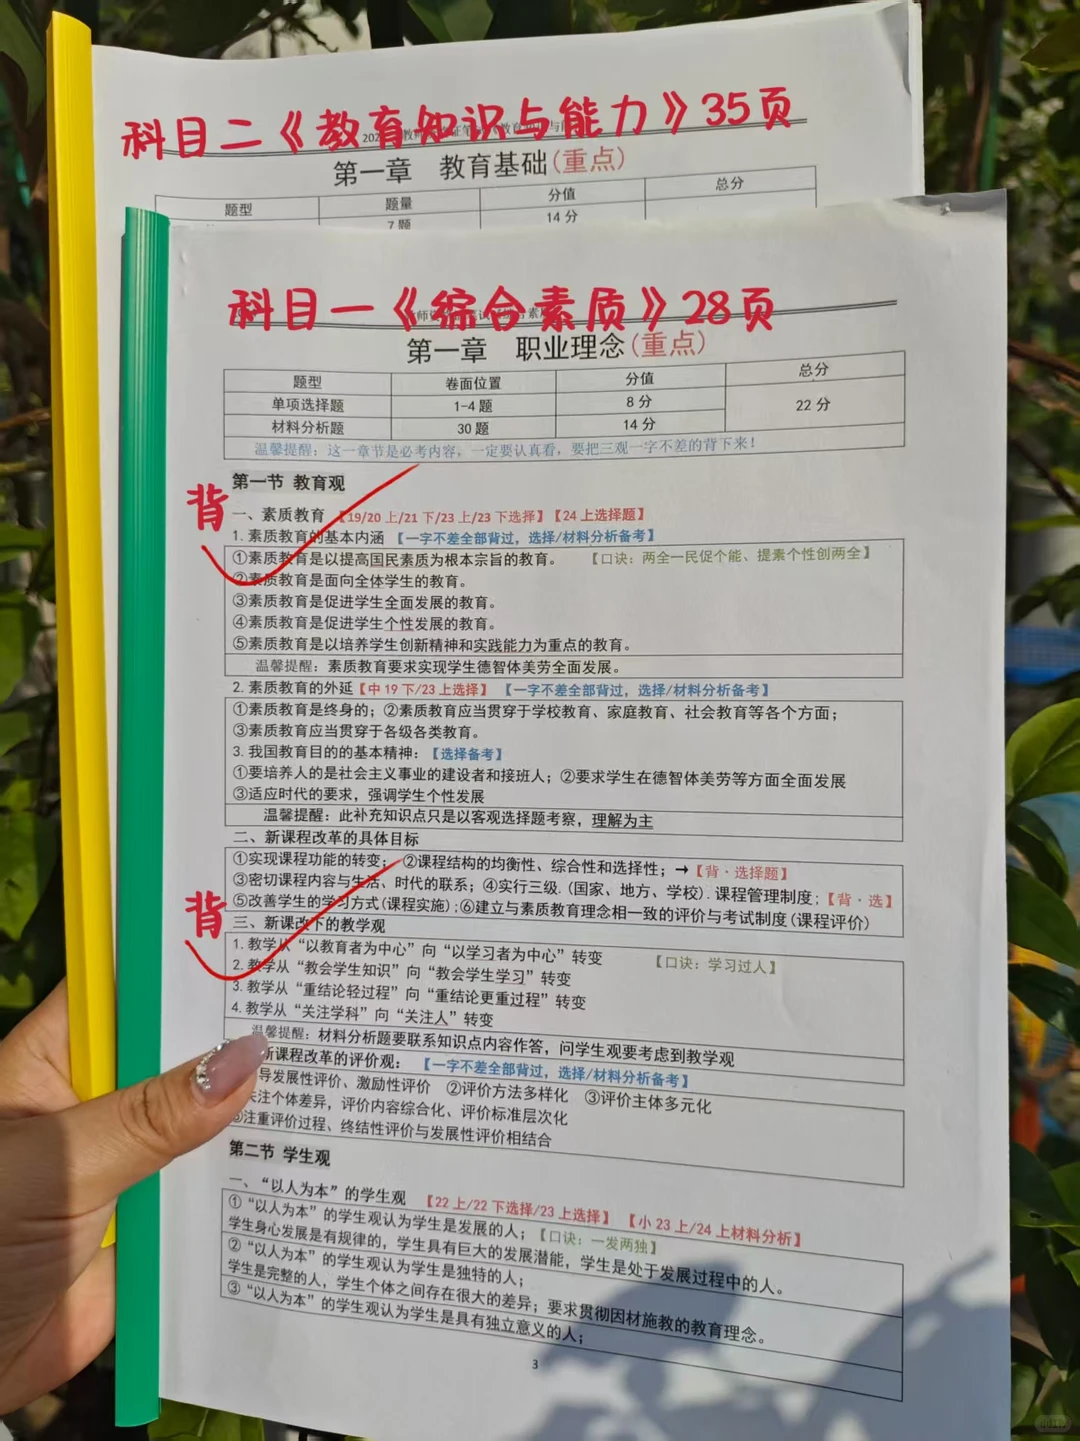 科目二《教育知识与能力》35页
第一章 教育基础(重点)
题型 题量 分值 总分
7题 14分
科目一《综合素质》28页
第一章 职业理念(重点)
题型 卷面位置 分值 总分
单项选择题 1-4题 8分 22分
材料分析题 30题 14分
温馨提醒：这一章节是必考内容，一定要认真看，要把三观一字不差的背下来！
第一节 教育观
背
一、素质教育【19/20上/21下/23上/23下选择】【24上选择题】
1.素质教育的基本内涵【一字不差全部背过，选择/材料分析备考】
①素质教育是以提高国民素质为根本宗旨的教育。【口诀：两全一民促个能、提素个性创两全】
②素质教育是面向全体学生的教育。
③素质教育是促进学生全面发展的教育。
④素质教育是促进学生个性发展的教育。
⑤素质教育是以培养学生创新精神和实践能力为重点的教育。
温馨提醒：素质教育要求实现学生德智体美劳全面发展。
2.素质教育的外延【中19下/23上选择】【一字不差全部背过，选择/材料分析备考】
①素质教育是终身的；②素质教育应当贯穿于学校教育、家庭教育、社会教育等各个方面；
③素质教育应当贯穿于各级各类教育。
3.我国教育目的的基本精神：【选择备考】
①要培养人的是社会主义事业的建设者和接班人；②要求学生在德智体美劳等方面全面发展
③适应时代的要求，强调学生个性发展
温馨提醒：此补充知识点只是以客观选择题考察，理解为主
二、新课程改革的具体目标
①实现课程功能的转变；②课程结构的均衡性、综合性和选择性；→【背·选择题】
③密切课程内容与生活、时代的联系；④实行三级.(国家、地方、学校).课程管理制度；【背·选】
⑤改善学生的学习方式(课程实施)；⑥建立与素质教育理念相一致的评价与考试制度(课程评价)
背
三、新课改下的教学观
1.教学从“以教育者为中心”向“以学习者为中心”转变 【口诀：学习过人】
2.教学从“教会学生知识”向“教会学生学习”转变
3.教学从“重结论轻过程”向“重结论更重过程”转变
4.教学从“关注学科”向“关注人”转变
温馨提醒：材料分析题要联系知识点内容作答，问学生观要考虑到教学观
新课程改革的评价观：【一字不差全部背过，选择/材料分析备考】
导发展性评价、激励性评价 ②评价方法多样化 ③评价主体多元化
关注个体差异，评价内容综合化、评价标准层次化
注重评价过程、终结性评价与发展性评价相结合
第二节 学生观
一、“以人为本”的学生观 【22上/22下选择/23上选择】【小23上/24上材料分析】
①“以人为本”的学生观认为学生是发展的人；【口诀：一发两独】
学生身心发展是有规律的，学生具有巨大的发展潜能，学生是处于发展过程中的人。
②“以人为本”的学生观认为学生是独特的人；
学生是完整的人，学生个体之间存在很大的差异；要求贯彻因材施教的教育理念。
③“以人为本”的学生观认为学生是具有独立意义的人；
3